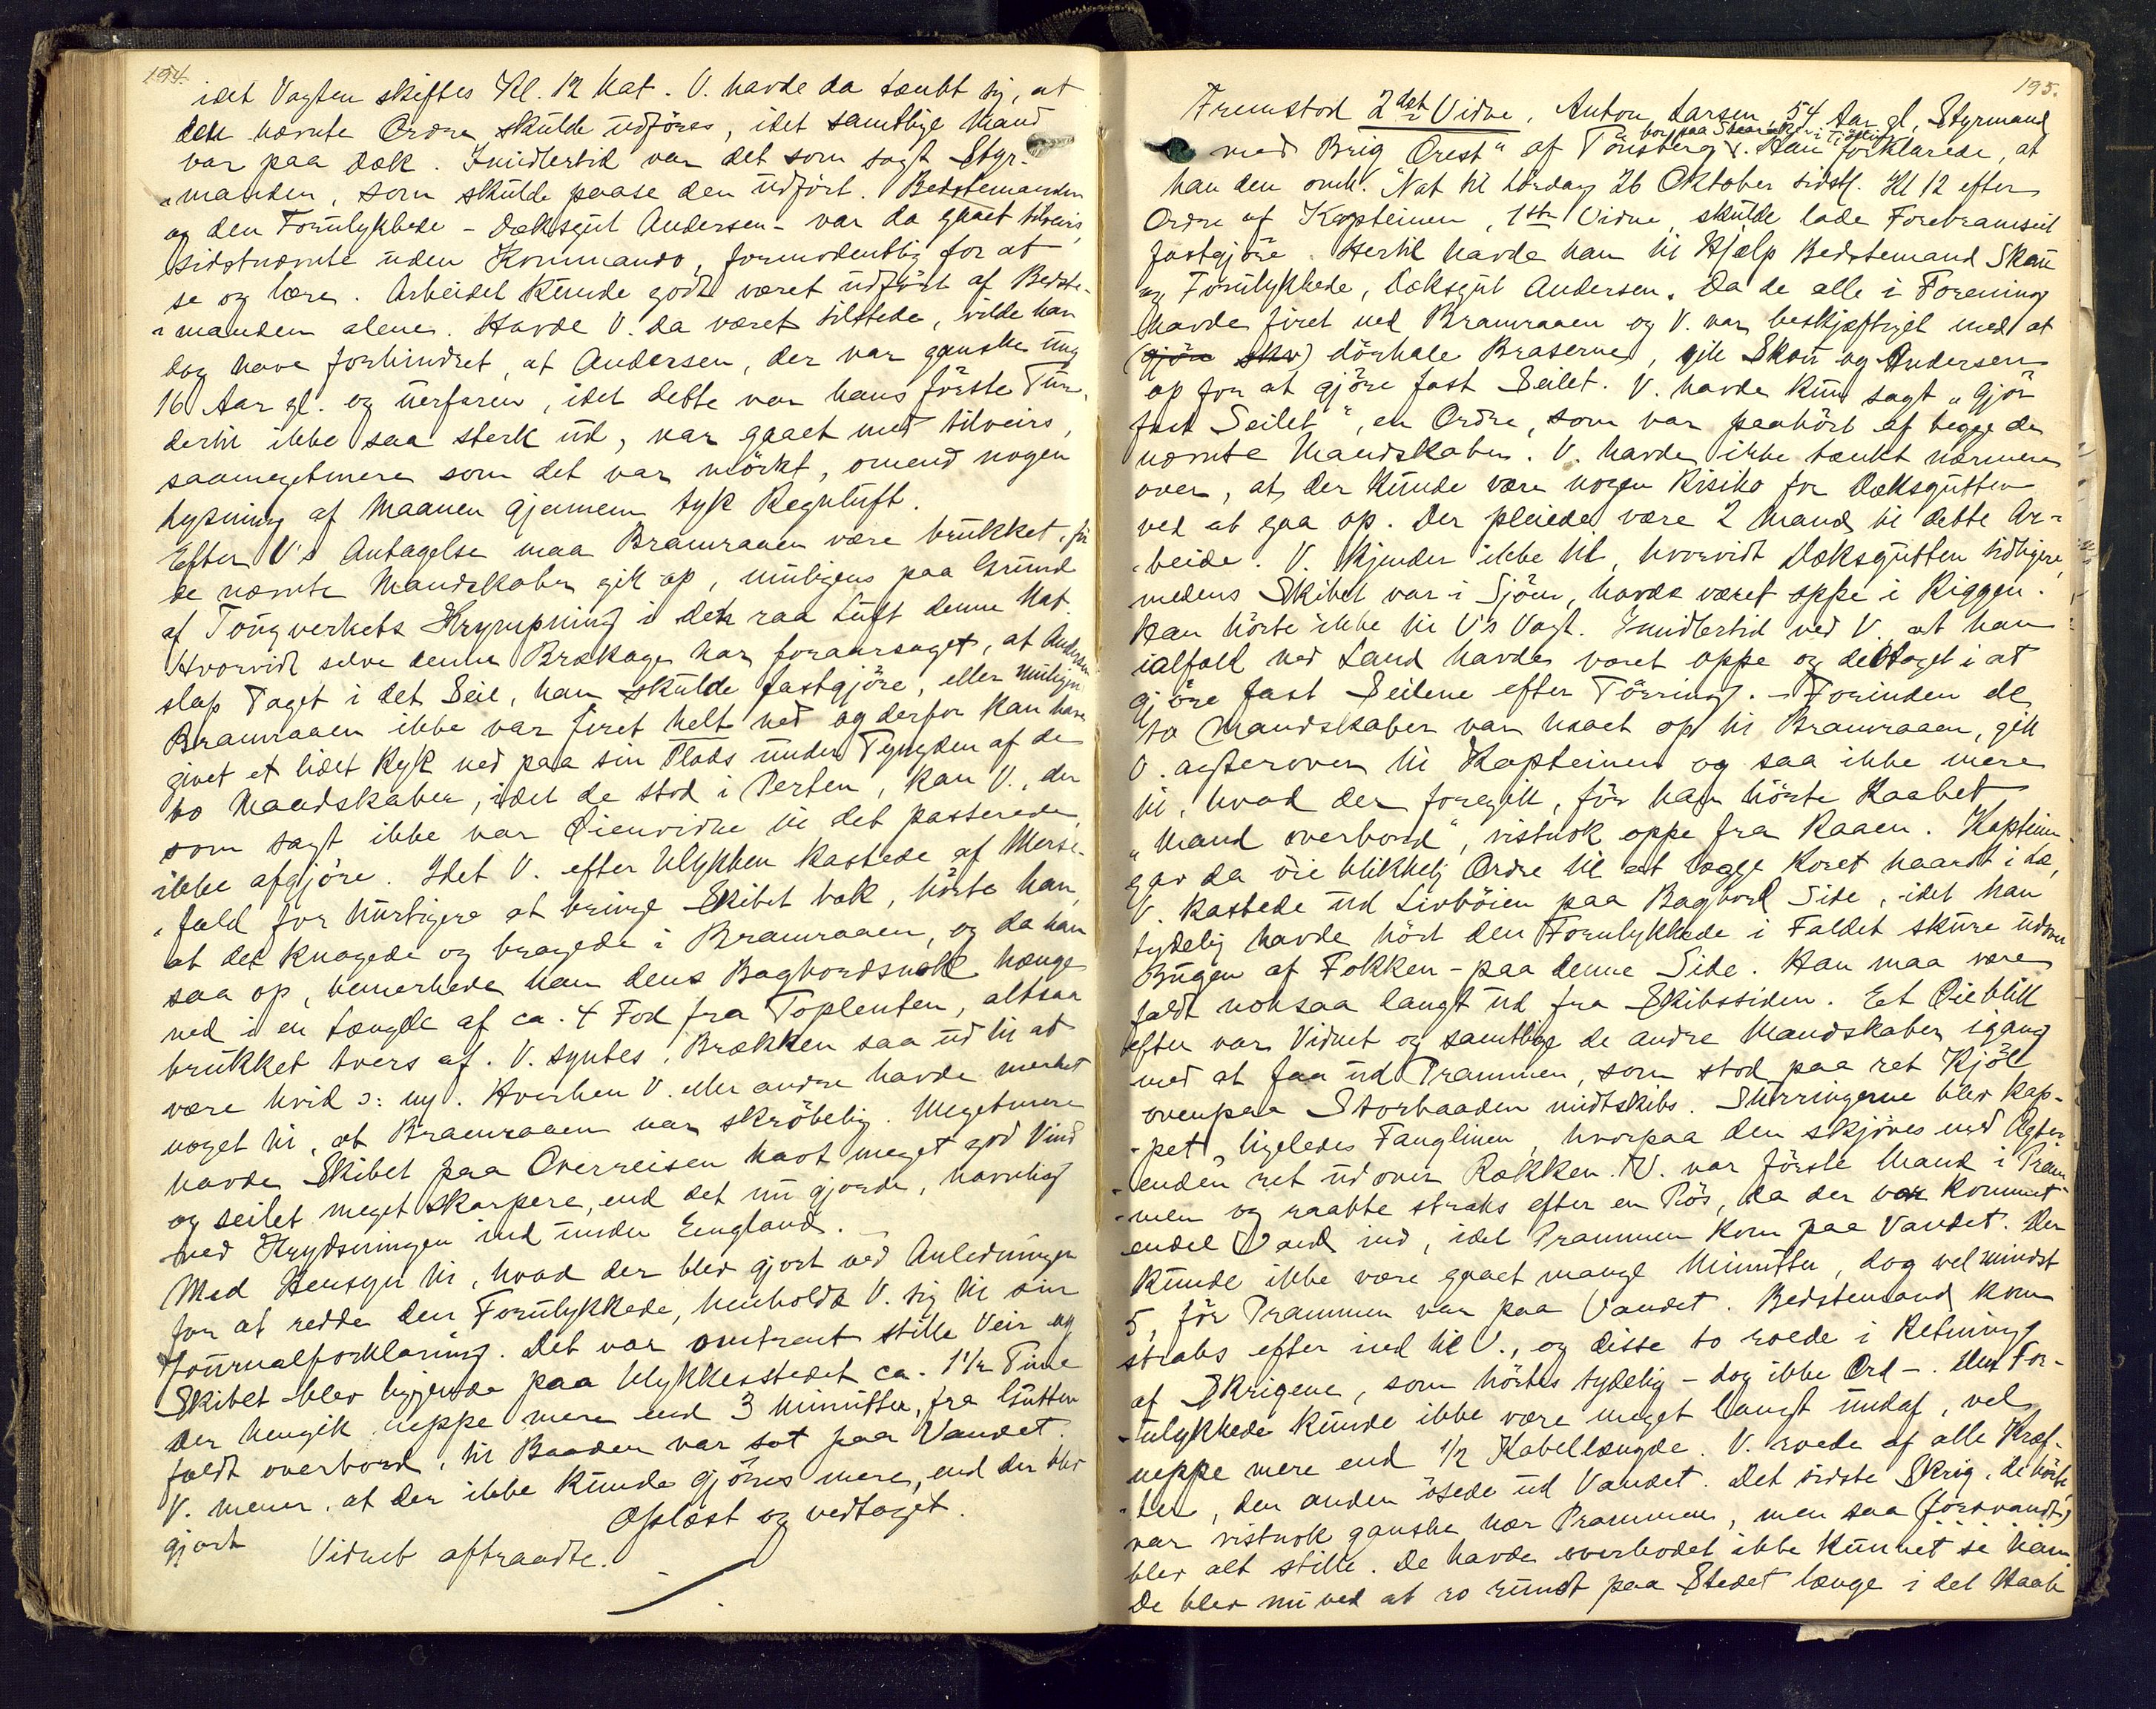 194.
idet Vagten skiftes Kl. 12 Nat. V. havde da tænkt sig, at
den nævnte Ordre skulde udföres, idet samtlige Mand
var paa Dæk. Imidlertid var det som sagt Styr-
manden, som skulde paase den udfört. Bedstemanden
og den Forulykkede - Dæksgut Andersen - var da gaaet tilveirs,
sidstnævnte uden Kommando, formodentlig for at
se og lære. Arbeidet kunde godt været udfört af Bedste-
manden alene. Havde V. da været tilstede, vilde han
dog have forhindret, at Andersen, der var ganske ung
16 Aar gl. og uerfaren, idet dette var hans förste Tur,
dertil ikke saa sterk ud, var gaaet med tilveirs,
saameget mere som det var mörkt, omend nogen
lysning af Maanen gjennem tyk Regnluft.
Efter V's Antagelse maa Bramraaen være brukket, för
de nævnte Mandskaber gik op, muligens paa Grund
af Tougverkets Krympning i den raa Luft denne Nat.
Hvorvidt selve denne Brækage har foraarsaget, at Andersen
slap Taget i det Seil, han skulde fastgjöre, eller muligens
Bramraaen ikke var firet helt ned og derfor kan have
givet et lidet Ryk ned paa sin Plads under Tyngden af de
to Mandskaber, idet de stod i Perten, kan V., der
som sagt ikke var Öienvidne til det passerede,
ikke afgjöre. Idet V. efter Ulykken kastede af Merse-
fald for hurtigere at bringe Skibet bak, hörte han,
at det knagede og bragede i Bramraaen, og da han
saa op, bemerkede han dens Bagbordsnok hænge
ned i en Længde af ca. 4 Fod fra Toplenten, altsaa
brukket tvers af. V. syntes, Brækken saa ud til at
være hvid ɔ: ny. Hverken V. eller andre havde merket
noget til, at Bramraaen var skröbelig. Meget mere
havde Skibet paa Overreisen havt meget god Vind
og seilet meget skarpere, end det nu gjorde, navnlig
ved Krydsningen ind under England.
Med Hensyn til, hvad der blev gjort ved Anledningen
for at redde den Forulykkede, henholdt V. sig til sin
Journalforklaring. Det var omtrent stille Veir og
Skibet blev liggende paa Ulykkesstedet ca. 1 1/2 Time
Der hengik neppe mere end 3 Minutter, fra Gutten
faldt overbord, til Baaden var sat paa Vandet.
V. mener, at der ikke kunde gjöres mere, end der blev
gjort Oplæst og vedtaget.
Vidnet aftraadte.
195.
Fremstod 2det Vidne, Anton Larsen, 54 Aar gl, Styrmand
bor paa
med Brig "Orest" af Tönsberg. Han forklarede, at
han den omh. Nat til Lördag 26 Oktober sidstl. Kl 12 efter
Ordre af Kapteinen, 1ste Vidne, skulde lade Forebramseil
fastgjöre. Hertil havde han til Hjælp Bedstemand Skau
og Forulykkede, Dæksgut Andersen. Da de alle i Forening
havde firet ned Bramraaen og V. var beskjæftiget med at
(gjöre skv) dörhale Braserne, gik Skau og Andersen
op for at gjöre fast Seilet. V. havde kun sagt "Gjör
fast Seilet", en Ordre, som var paahört af begge de
nævnte Mandskaber. V. havde ikke tænkt nærmere
over, at der kunde være nogen Risiko for Dæksgutten
ved at gaa op. Der pleiede være 2 Mand til dette Ar-
beide. V. kjender ikke til, hvorvidt Dæksgutten tidligere,
medens Skibet var i Sjöen, havde været oppe i Riggen.
Han hörte ikke til V's Vagt. Imidlertid ved V. at han
ialfald ved Land havde været oppe og deltaget i at
gjöre fast Seilene efter Törring. - Forinden de
to Mandskaber var naaet op til Bramraaen, gik
V. agterover til Kapteinen og saa ikke mere
til, hvad der foregik, för han hörte Raabet
"Mand overbord", vistnok oppe fra Raaen. Kapteinen
gav da öieblikkelig Ordre til at lægge Roret haardt i Læ,
V. kastede ud Livböien paa Bagbord Side, idet han
tydelig havde hört den Forulykkede i Faldet skure udover
Bugen af Fokken - paa denne Side. Han maa være
faldt noksaa langt ud fra Skibssiden. Et Öieblik
efter var Vidnet og samtlige de andre Mandskaber igang
med at faa ud Prammen, som stod paa ret Kjöl
ovenpaa Storbaaden midtskibs. Surringerne blev kap-
pet, ligeledes Fanglinen, hvorpaa den skjöves med Agter
enden ret ud over Rækken. V. var förste Mand i Pram-
men og raabte straks efter en Pös, da der var kommet
endel Vand ind, idet Prammen kom paa Vandet. Der
kunde ikke være gaaet mange Minutter, dog vel mindst
5, för Prammen var paa Vandet. Bedstemand kom
straks efter ind til V., og disse to roede i Retning
af Skrigene, som hörtes tydelig - dog ikke Ord -. Den For-
ulykkede kunde ikke være meget langt undaf, vel
neppe mere end 1/2 Kabellængde. V. roede af alle Kræf-
ter, den anden ösede ud Vandet. Det sidste Skrig, de hörte
var vistnok ganske nær Prammen, men saa (forsvandt)
blev alt stille. De havde overhodet ikke kunnet se ham.
De blev nu ved at ro rundt paa Stedet længe i det Haab